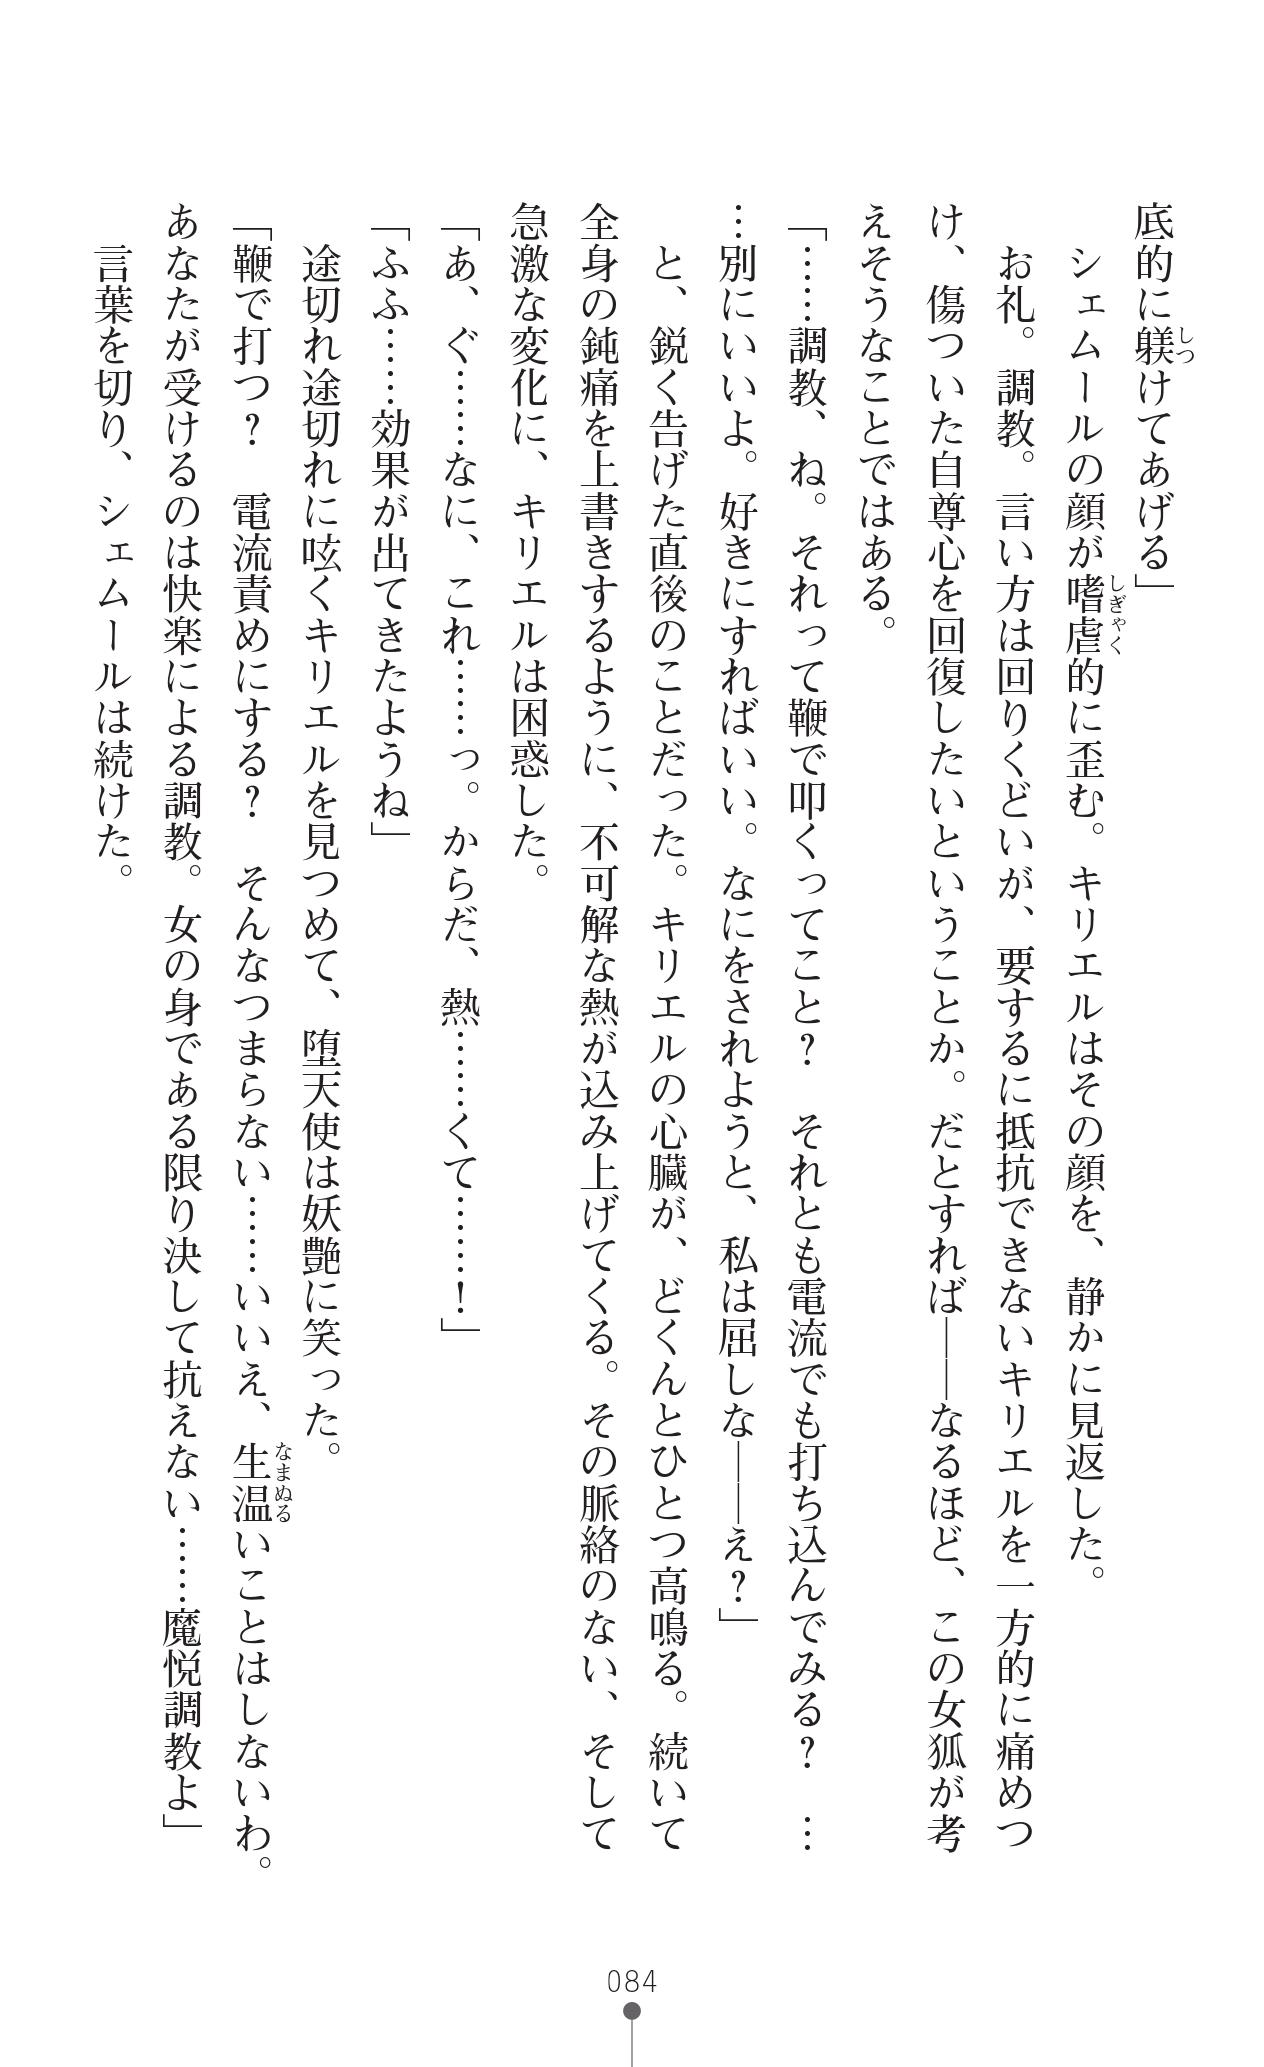 底的に躾けてあげる」
　シェムールの顔が嗜虐的に歪む。キリエルはその顔を、静かに見返した。
　お礼。調教。言い方は回りくどいが、要するに抵抗できないキリエルを一方的に痛めつ
け、傷ついた自尊心を回復したいということか。だとすれば――なるほど、この女狐が考
えそうなことではある。
「……調教、ね。それって鞭で叩くってこと？　それとも電流でも打ち込んでみる？　…
…別にいいよ。好きにすればいい。なにをされようと、私は屈しな――え？」
　と、鋭く告げた直後のことだった。キリエルの心臓が、どくんとひとつ高鳴る。続いて
全身の鈍痛を上書きするように、不可解な熱が込み上げてくる。その脈絡のない、そして
急激な変化に、キリエルは困惑した。
「あ、ぐ……なに、これ……っ。からだ、熱……くて……！」
「ふふ……効果が出てきたようね」
　途切れ途切れに呟くキリエルを見つめて、堕天使は妖艶に笑った。
「鞭で打つ？　電流責めにする？　そんなつまらない……いいえ、生温いことはしないわ。
あなたが受けるのは快楽による調教。女の身である限り決して抗えない……魔悦調教よ」
　言葉を切り、シェムールは続けた。
しつ
しぎゃく
なまぬる
084